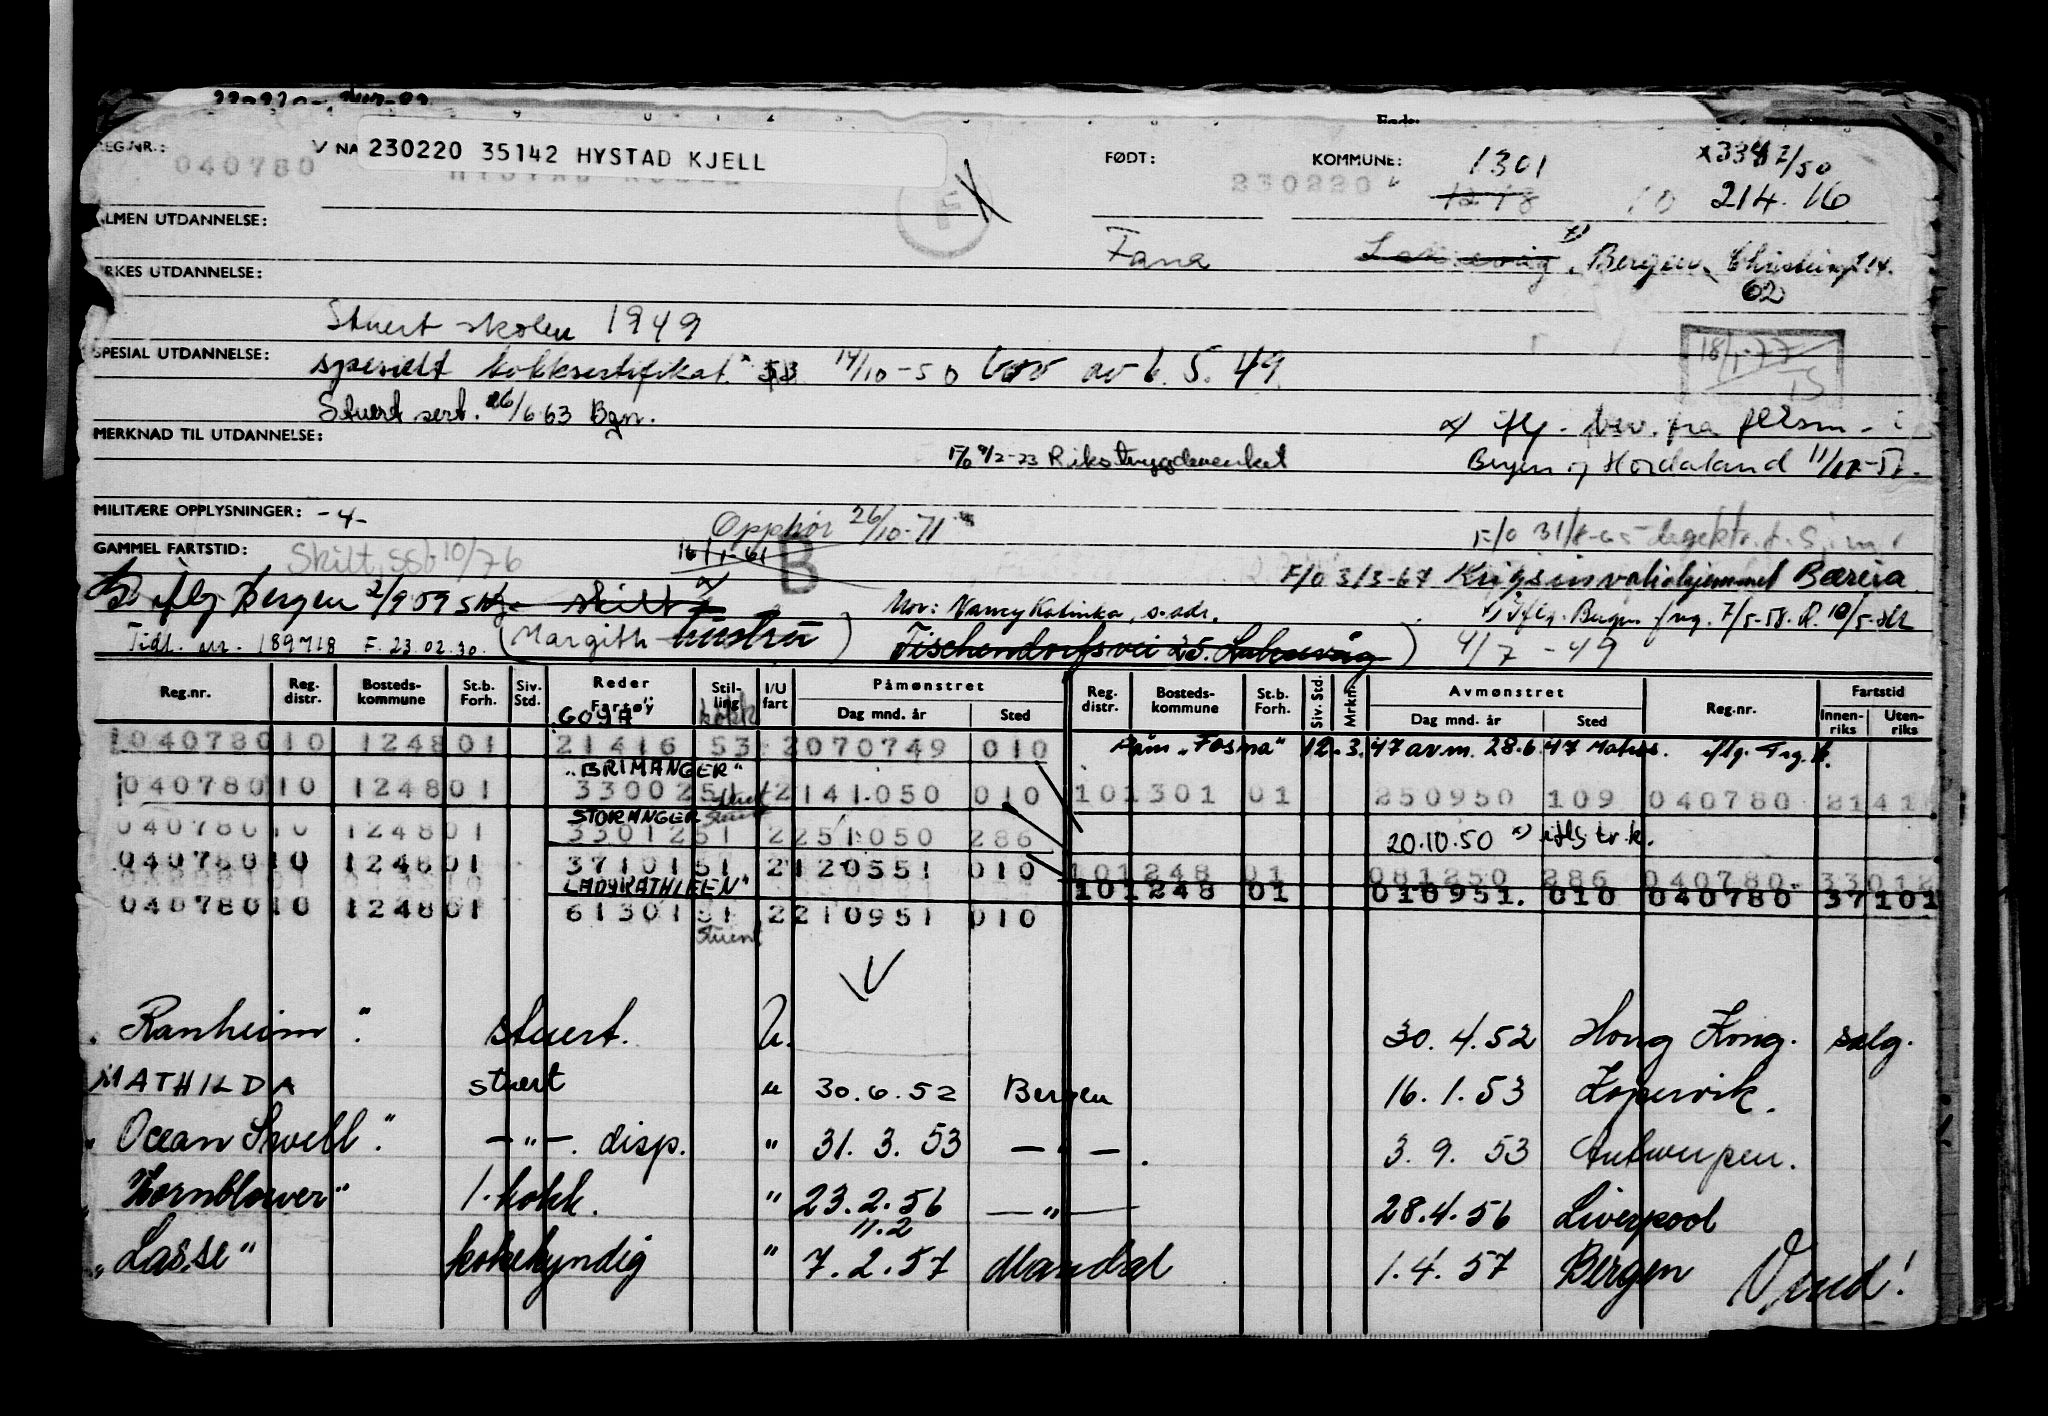 REG.NR.: 040780 V NA 230220 35142 HYSTAD KJELL FØDT: 230220 KOMMUNE: 1301 x3342/50
1218 10 214.16
ALMEN UTDANNELSE:
F
Fana Bergen, 
62
YRKES UTDANNELSE:
Stuert skolen 1949
18/1-77
SPESIAL UTDANNELSE: spesielt kokksertifikat. 14/10-50 av 6.5.49
Stuert sert. 26/6 63 Bgn. x) iflg. fra i
MERKNAD TIL UTDANNELSE:
F/o Rikstrygdeverket Bergen og Hordaland
MILITÆRE OPPLYSNINGER: -4- Opphør 26/10-71
F/O 31/8-65
GAMMEL FARTSTID: Skilt, ssb 10/76 16/1-61 B
F/O 3/3-67 Krigsinvalidehjemmet Bæreia
iflg Bergen 2/9 59 skilt Mor: Nancy Katinka, s. adr. Iflg. Bergen 7/5-58.
Tidl. nr. 189718 F. 23.02.30. (Margith hustru) Tischendorfsvei 25. Laksevåg) 4/7-49
Reg.nr. Reg. distr. Bosteds-kommune St.b. Forh. Siv. Std. Reder Fartøy Stil-ling I/U fart Påmønstret Dag mnd. år Sted Reg. distr. Bosteds-kommune St.b. Forh. Siv. Std. Mrkn. Avmønstret Dag mnd. år Sted Reg.nr. Fartstid Innen-riks Uten-riks
GOYA kokk
040780 10 1248 01 21416 53 2 070749 010 "Fosna" 12.3.47 avm. 28.6.47 Matros. iflg.
"BRIMANGER"
040780 10 1248 01 33002 51 stuert 2 141050 010 10 1301 01 250950 109 040780 21416
STORANGER stuert
040780 10 1248 01 33012 51 2 251050 286 20.10.50 x) iflg tr.k.
040780 10 1248 01 37101 51 2 120551 010 10 1248 01 081250 286 040780 33012
"LADY KATHLEEN" 10 1248 01 010951. 010 040780 37101
040780 10 1248 01 61301 51 2 210951 010
Stuert
V
Ranheim" stuert. U. 30.4.52 Hong Kong. salg.
MATHILDA stuert " 30.6.52 Bergen 16.1.53 Kopervik.
"Ocean Swell" -"-. disp. " 31.3.53 -"-. 3.9.53 Antwerpen.
"Hornblower" 1. kokk. " 23.2.56 -"- 28.4.56 Liverpool
11.2
"Lasse" kokekyndig " 7.2.57 Mandal 1.4.57 Bergen Vend!